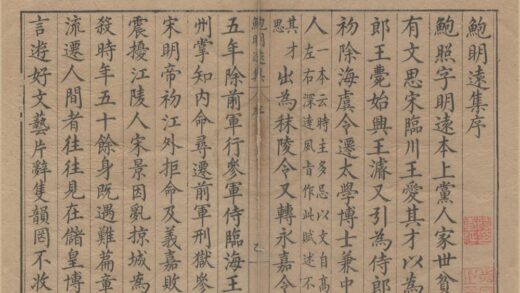 鮑明遠集序
鮑照字明遠本上黨人家世貧
有文思宋臨川王愛其才以為
郎王薨始興王濬又引為侍郎
初除海虞令遷太學博士兼中
人一本云時主多忌以文自高
左右深達風旨作此賦述不
其才出為秣陵令又轉永嘉令
鮑明遠集
五年除前軍行參軍侍臨海王
州掌知內命尋遷前軍刑獄參
宋明帝初江外拒命及義嘉敗
震擾江陵人宋景因亂掠城為
殺時年五十餘身既遇難篇章
流遷人間者往往見在儲皇博
言遊好文藝片辭隻韻罔不收